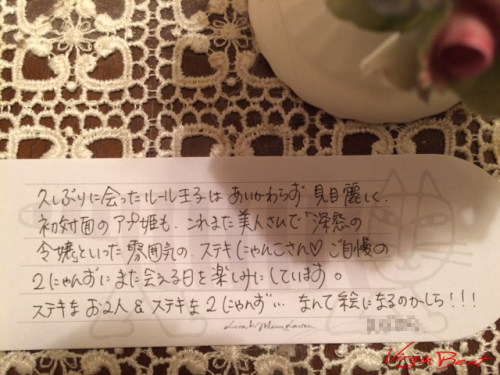 久しぶりに会ったルール王子は あいかわらず 見目麗しく、
初対面のアプ姫も、これまた美人さんで「深窓の
令嬢」といった雰囲気の、ステキにゃんこさん♡ ご自慢の
2にゃんずにまた会える日を楽しみにしています。
ステキなお2人 & ステキな2にゃんず… なんて絵になるのかしら!!!